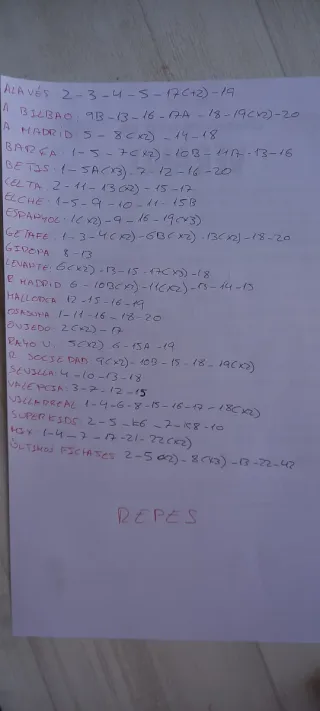 ALAVÉS 2-3-4-5-17(x2)-19
A BILBAO: 9B-13-16-17A-18-19(x2)-20
A MADRID 5-8(x2)-14-18
BARÇA: 1-5-7(x2)-10B-11A-13-16
BETIS: 1-5A(x3)-7-12-16-20
CELTA: 2-11-13(x2)-15-17
ELCHE: 1-5-9-10-11-15B
ESPANYOL: 1(x2)-9-16-19(x3)
GETAFE: 1-3-4(x2)-6B(x2)-13(x2)-18-20
GIRONA 8-13
LEVANTE: 6(x2)-13-15-17(x3)-18
R MADRID 6-10B(x2)-11(x2)-13-14-15
MALLORCA 12-15-16-19
OSASUNA 1-11-16-18-20
OVIEDO: 2(x2)-17
RAYO V. 5(x2) 6-15A-19
R. SOCIEDAD 9(x2)-10B-15-18-19(x2)
SEVILLA: 4-10-13-18
VALENCIA: 3-7-12-15
VILLAREAL 1-4-6-8-15-16-17-18(x2)
SUPERKIDS 2-5-7-10
MIX 1-4-7-17-21-22(x2)
ÚLTIMOS FICHAJES 2-5(x2)-8(x3)-13-22-42
REPES